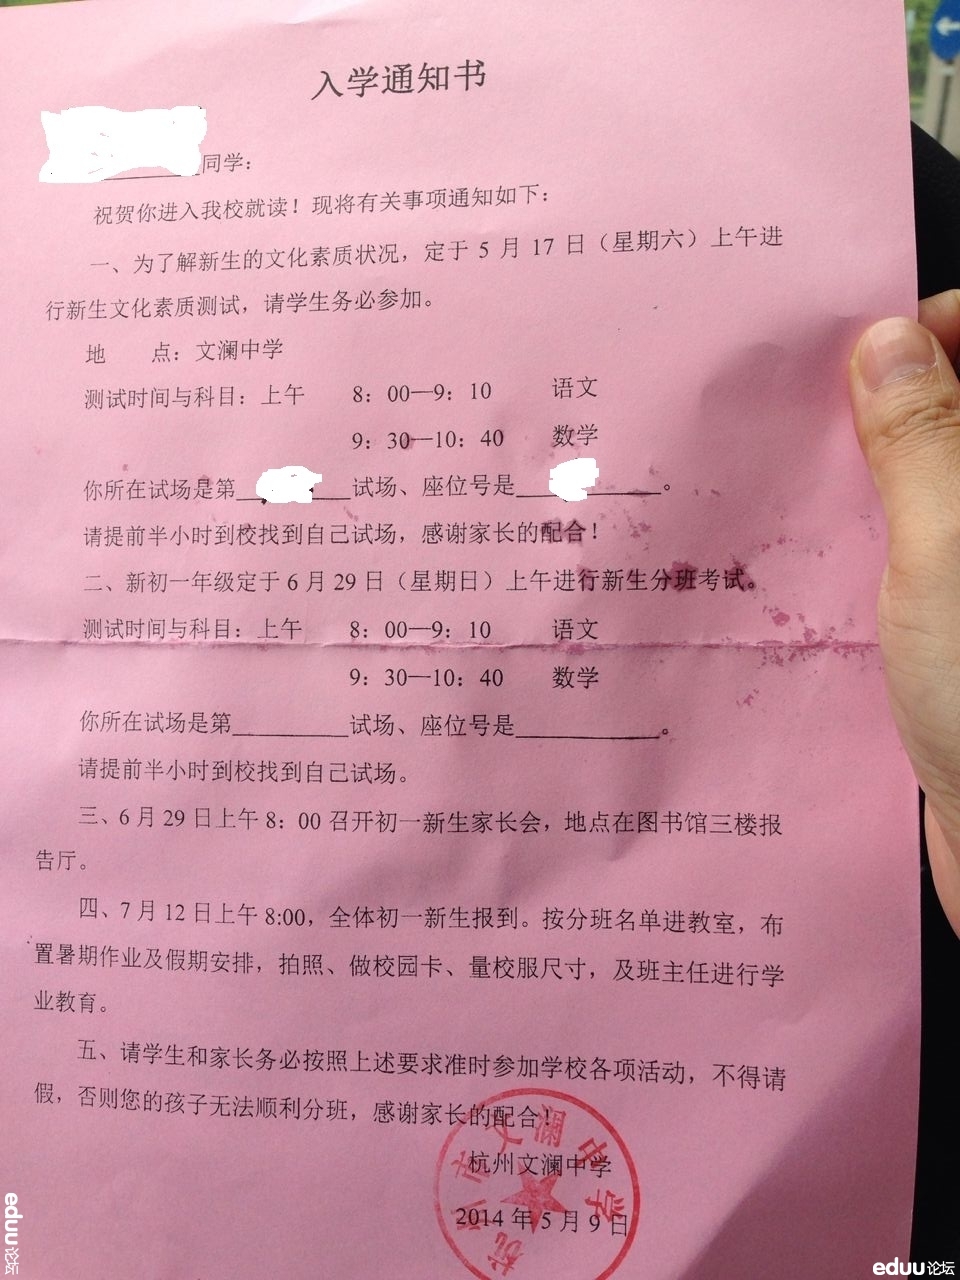 入学通知书
同学：
祝贺你进入我校就读！现将有关事项通知如下：
一、为了解新生的文化素质状况，定于 5 月 17 日（星期六）上午进
行新生文化素质测试，请学生务必参加。
地 点：文澜中学
测试时间与科目：上午 8：00—9：10 语文
9：30—10：40 数学
你所在试场是第______试场、座位号是______。
请提前半小时到校找到自己试场，感谢家长的配合！
二、新初一年级定于 6 月 29 日（星期日）上午进行新生分班考试。
测试时间与科目：上午 8：00—9：10 语文
9：30—10：40 数学
你所在试场是第______试场、座位号是______。
请提前半小时到校找到自己试场。
三、6 月 29 日上午 8：00 召开初一新生家长会，地点在图书馆三楼报
告厅。
四、7 月 12 日上午 8:00，全体初一新生报到。按分班名单进教室，布
置暑期作业及假期安排，拍照、做校园卡、量校服尺寸，及班主任进行学
业教育。
五、请学生和家长务必按照上述要求准时参加学校各项活动，不得请
假，否则您的孩子无法顺利分班，感谢家长的配合！
杭州文澜中学
2014 年 5 月 9 日
杭州市文澜中学
eduu论坛
eduu论坛